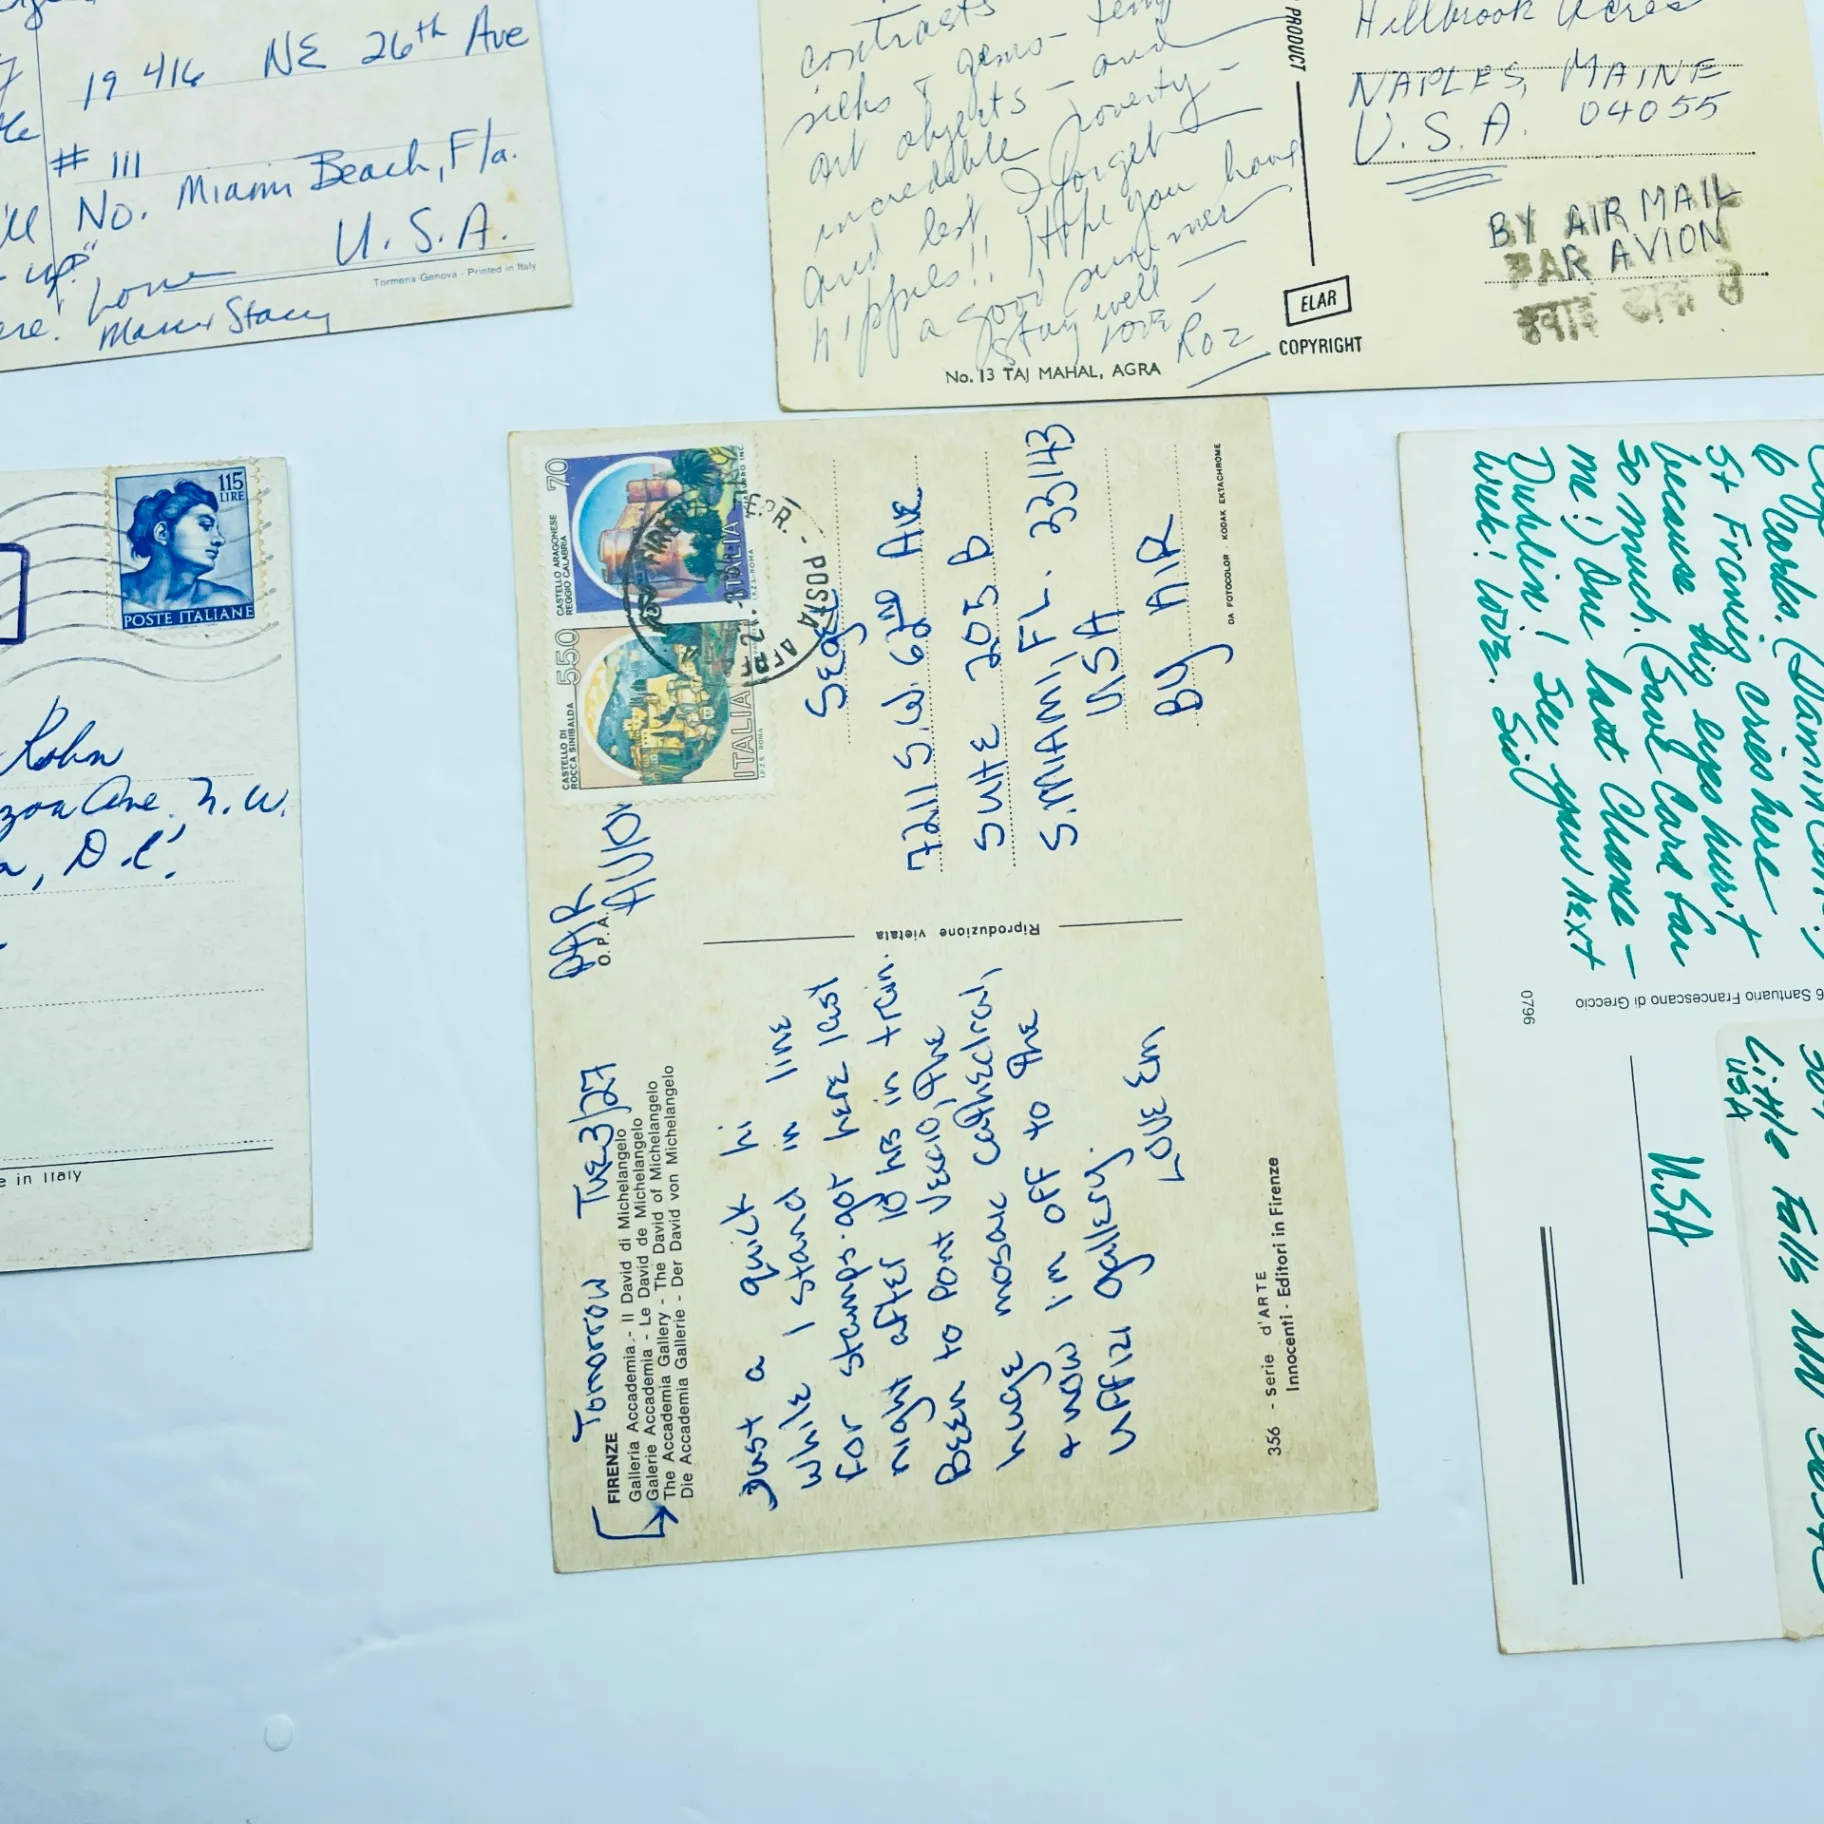 19 416 NE 26th Ave
# 111
No. Miami Beach, Fla.
U.S.A.
Tormena-Genova - Printed in Italy
Love
Stacy
contrasts
silks & gems -
art objects - and
incredible poverty -
and lest I forget -
hippies!! Hope you have
a good summer
Stay well -
Love -
Roz
No. 13 TAJ MAHAL, AGRA
PRODUCT
ELAR
COPYRIGHT
Hillbrook Acres
NAPLES, MAINE
U.S.A. 04055
BY AIR MAIL
PAR AVION
115
LIRE
POSTE ITALIANE
Kohn
Ave. N.W.
D.C.
in Italy
PAR
AVION
O. P. A.
CASTELLO DI
ROCCA SINIBALDA
550
ITALIA
I.P.Z.S. ROMA
CASTELLO ARAGONESE
REGGIO CALABRIA
70
ITALIA
I.P.Z.S. ROMA
Tomorrow Tue 3/27
FIRENZE
Galleria Accademia - Il David di Michelangelo
Galerie Accademia - Le David de Michelangelo
The Accademia Gallery - The David of Michelangelo
Die Accademia Gallerie - Der David von Michelangelo
Just a quick hi
while I stand in line
for stamps. got here last
night after 10 hrs in train.
Been to Pont Veccio, the
huge mosaic cathedral,
& now I'm off to the
Uffizi gallery.
Love Em
356 - Serie d'ARTE
Innocenti - Editori in Firenze
Riproduzione vietata
Segel
7211 S.W. 62nd Ave
Suite 205 B
S. MIAMI, FL. 33143
USA
By AIR
DA FOTOCOLOR KODAK EKTACHROME
6 Cards.
St Francis cries here
because his eyes hurt
so much. (Save Card for
me!) One last Chance -
Duhlin! See you next
week! Love. Sid
0796
6 Santuario Francescano di Greccio
Little Falls NJ
USA
USA